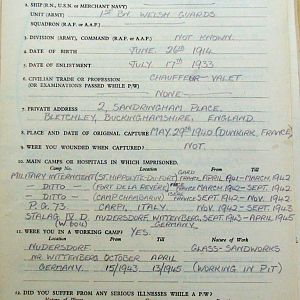 2. SHIP (R.N., U.S.N. or MERCHANT NAVY)
UNIT (ARMY) 1ST BN. WELSH GUARDS
SQUADRON (R.A.F. or A.A.F.)
3. DIVISION (ARMY), COMMAND (R.A.F. or A.A.F.) NOT KNOWN.
4. DATE OF BIRTH JUNE 26th 1914.
5. DATE OF ENLISTMENT JULY 17th 1933
6. CIVILIAN TRADE or PROFESSION CHAUFFEUR-VALET
(OR EXAMINATIONS PASSED WHILE P/W)
— NONE —
7. PRIVATE ADDRESS 2, SANDRINGHAM PLACE,
BLETCHLEY, BUCKINGHAMSHIRE, ENGLAND.
8. PLACE AND DATE OF ORIGINAL CAPTURE MAY 29th 1940 (DUNKIRK, FRANCE)
9. WERE YOU WOUNDED WHEN CAPTURED? NOT.
10. MAIN CAMPS or HOSPITALS IN WHICH IMPRISONED.
Camp No. Location From Till
MILITARY INTERNMENT (ST. HIPPOLYTE-DU-FORT) GARD FRANCE APRIL 1941-MARCH 1942
- DITTO - (FORT DE LA REVERE) FRANCE MARCH 1942-SEPT. 1942
- DITTO - (CAMP CHAMBARAN) FRANCE SEPT. 1942-NOV. 1942
P.G. 73. CARPI, ITALY. NOV. 1942-SEPT. 1943
STALAG IV D. MUDERSDORF, WITTENBERG, SEPT. 1943-APRIL 1945
GERMANY
11. WERE YOU IN A WORKING CAMP? YES.
Location From Till Nature of Work
NUDERSDORF GLASS-SANDWORKS
NR WITTENBERG OCTOBER APRIL
GERMANY 15/1943. 13/1945 (WORKING IN PIT)
12. DID YOU SUFFER FROM ANY SERIOUS ILLNESSES WHILE A P/W?